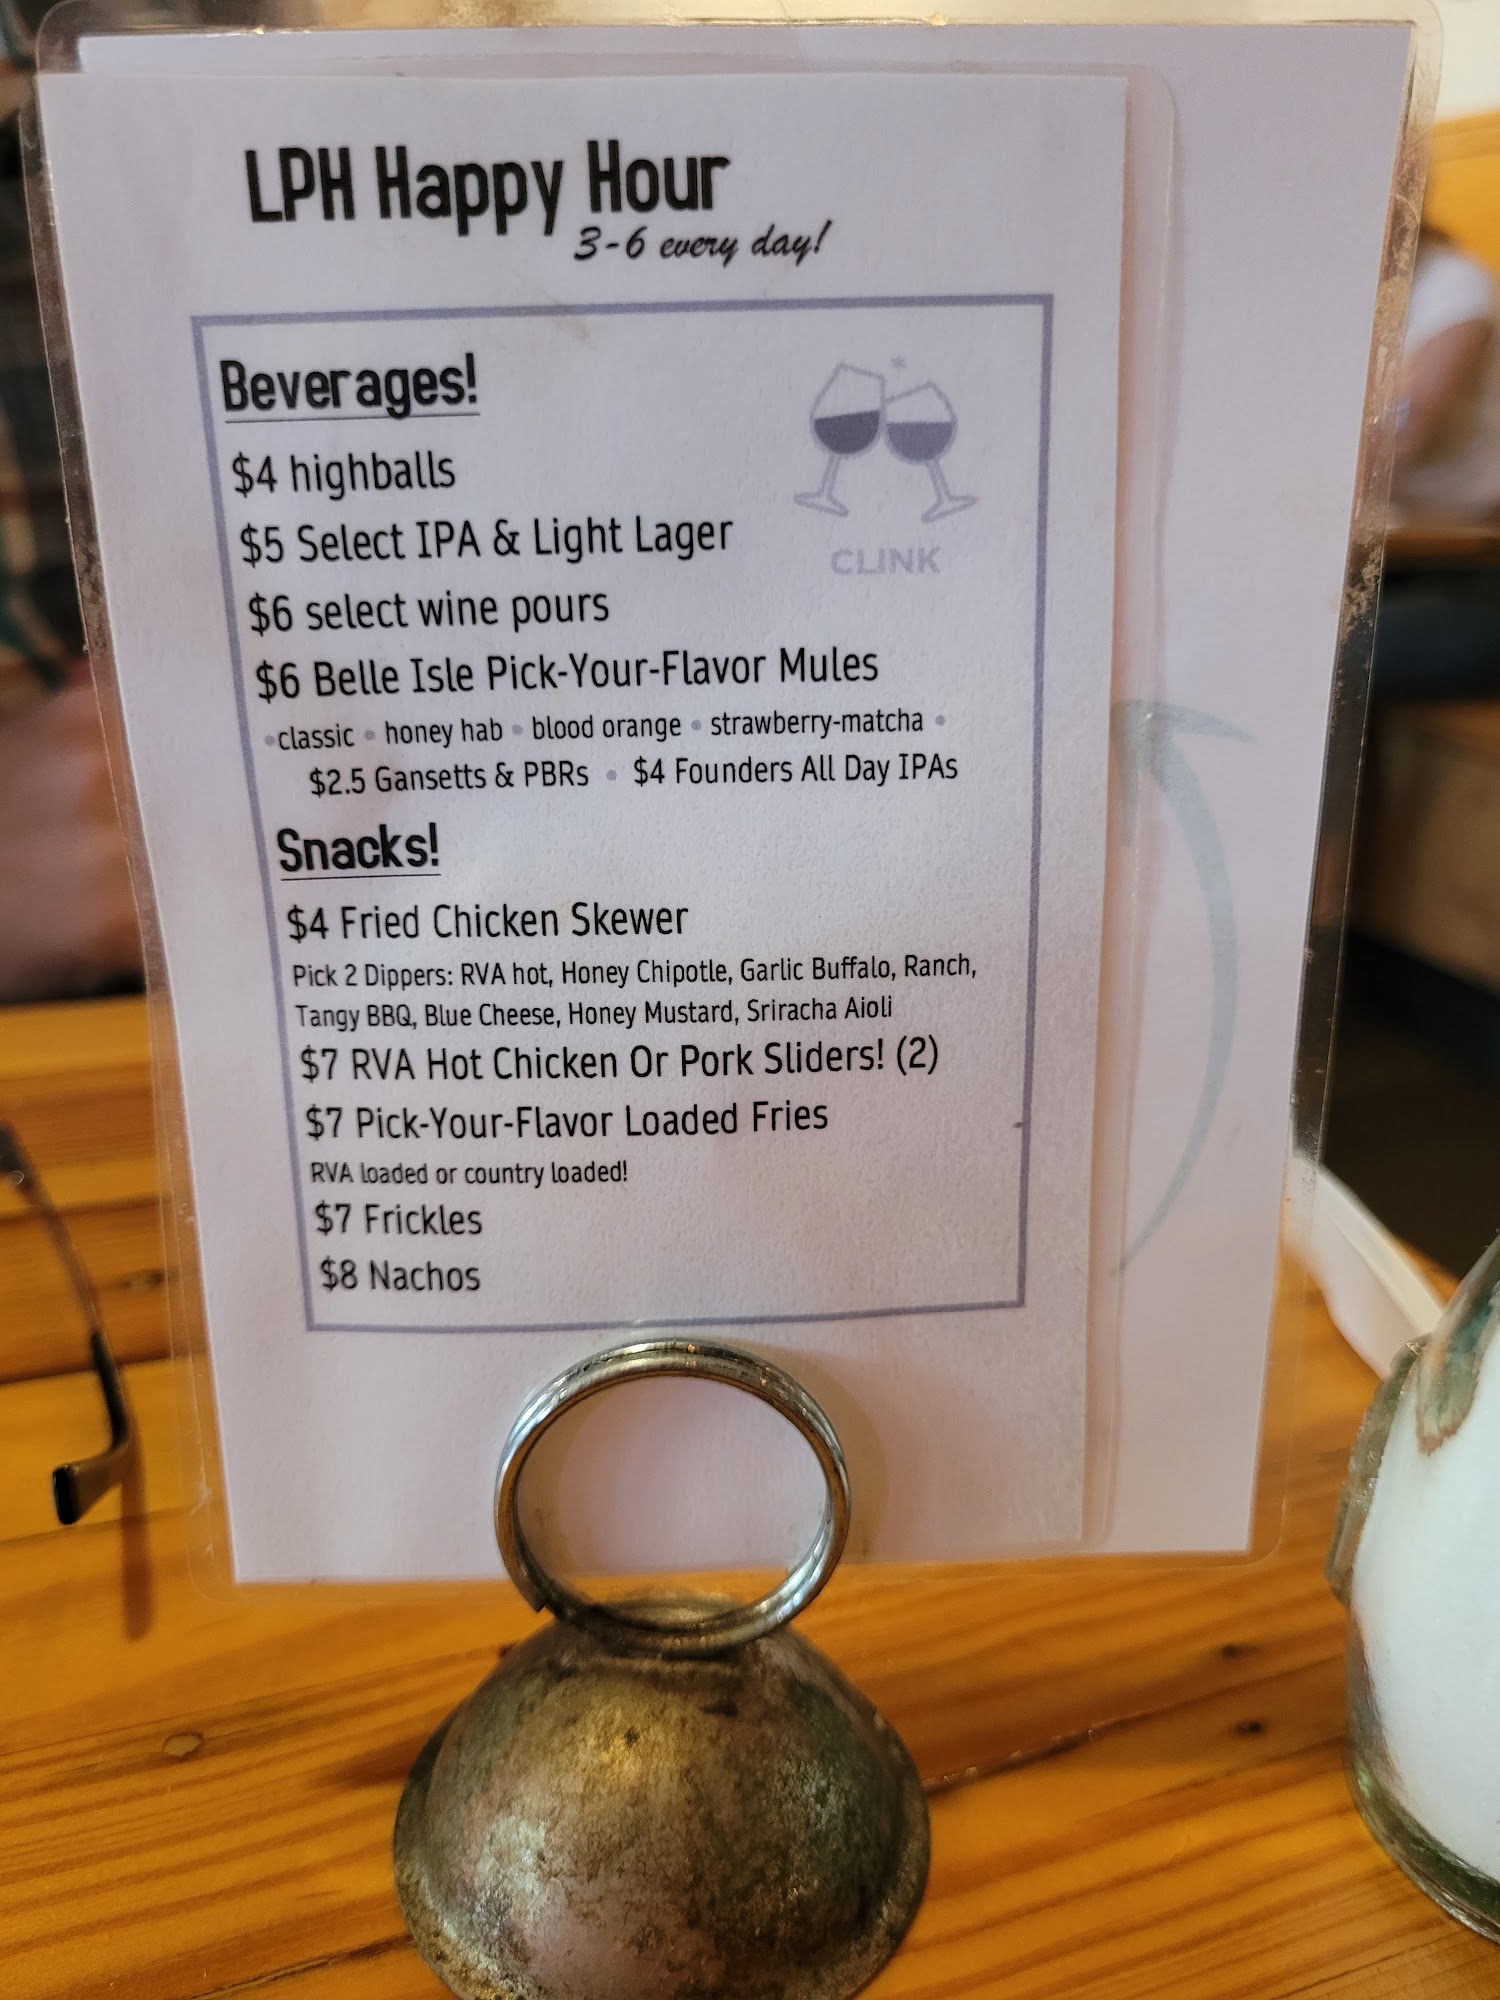 LPH Happy Hour
3-6 every day!
Beverages!
$4 highballs
$5 Select IPA & Light Lager
CLINK
$6 select wine pours
$6 Belle Isle Pick-Your-Flavor Mules
• classic • honey hab • blood orange • strawberry-matcha •
$2.5 Gansetts & PBRs • $4 Founders All Day IPAs
Snacks!
$4 Fried Chicken Skewer
Pick 2 Dippers: RVA hot, Honey Chipotle, Garlic Buffalo, Ranch,
Tangy BBQ, Blue Cheese, Honey Mustard, Sriracha Aioli
$7 RVA Hot Chicken Or Pork Sliders! (2)
$7 Pick-Your-Flavor Loaded Fries
RVA loaded or country loaded!
$7 Frickles
$8 Nachos